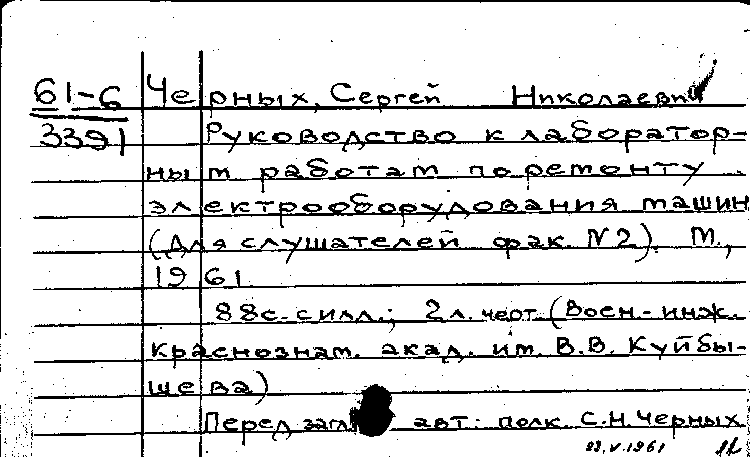 61-6 Черных, Сергей Николаевич
3391 Руководство к лаборатор-
ным работам по ремонту
электрооборудования машин
(Для слушателей фак. N2). М.,
1961.
88с. с илл.; 2л. черт. (Воен.-инж.
краснознам. акад. им. В.В. Куйбы-
шева)
Перед загл. авт.: полк. С.Н. Черных